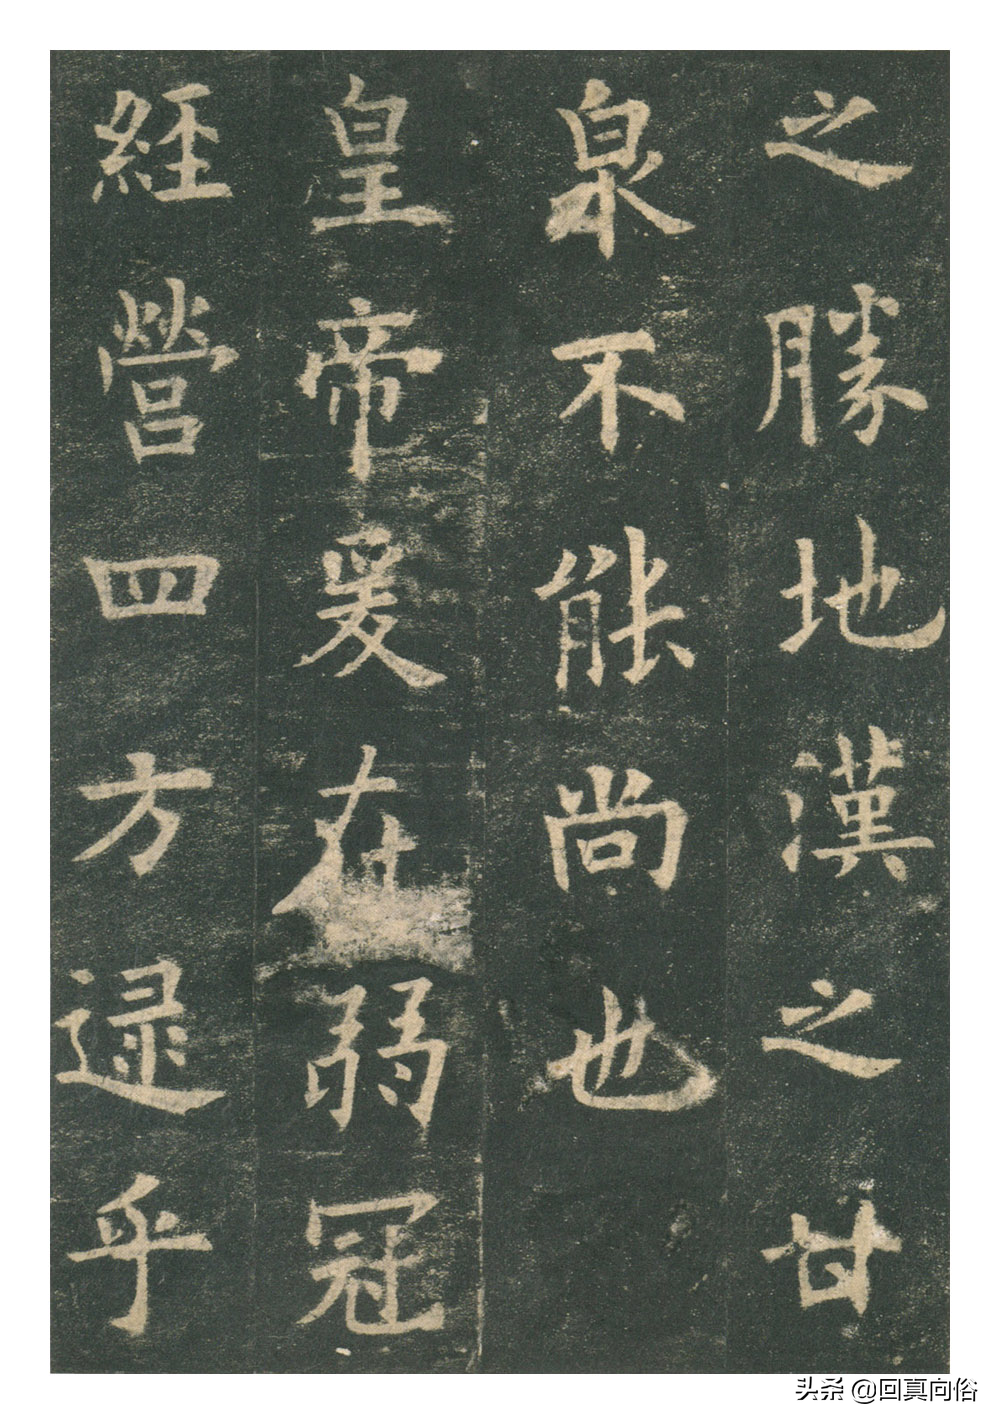 之勝地漢之甘
泉不能尚也
皇帝爰在弱冠
經營四方逯乎
头条 @回真向俗